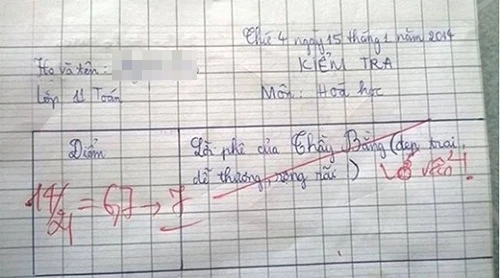 Thứ 4 ngày 15 tháng 1 năm 2014
Họ và tên:
KIỂM TRA
Lớp 11 Toán
Môn: Hoá học
Điểm
Lời phê của Thầy Bằng (đẹp trai,
dễ thương, nóng nãi)
14/21 = 6,7 → 7